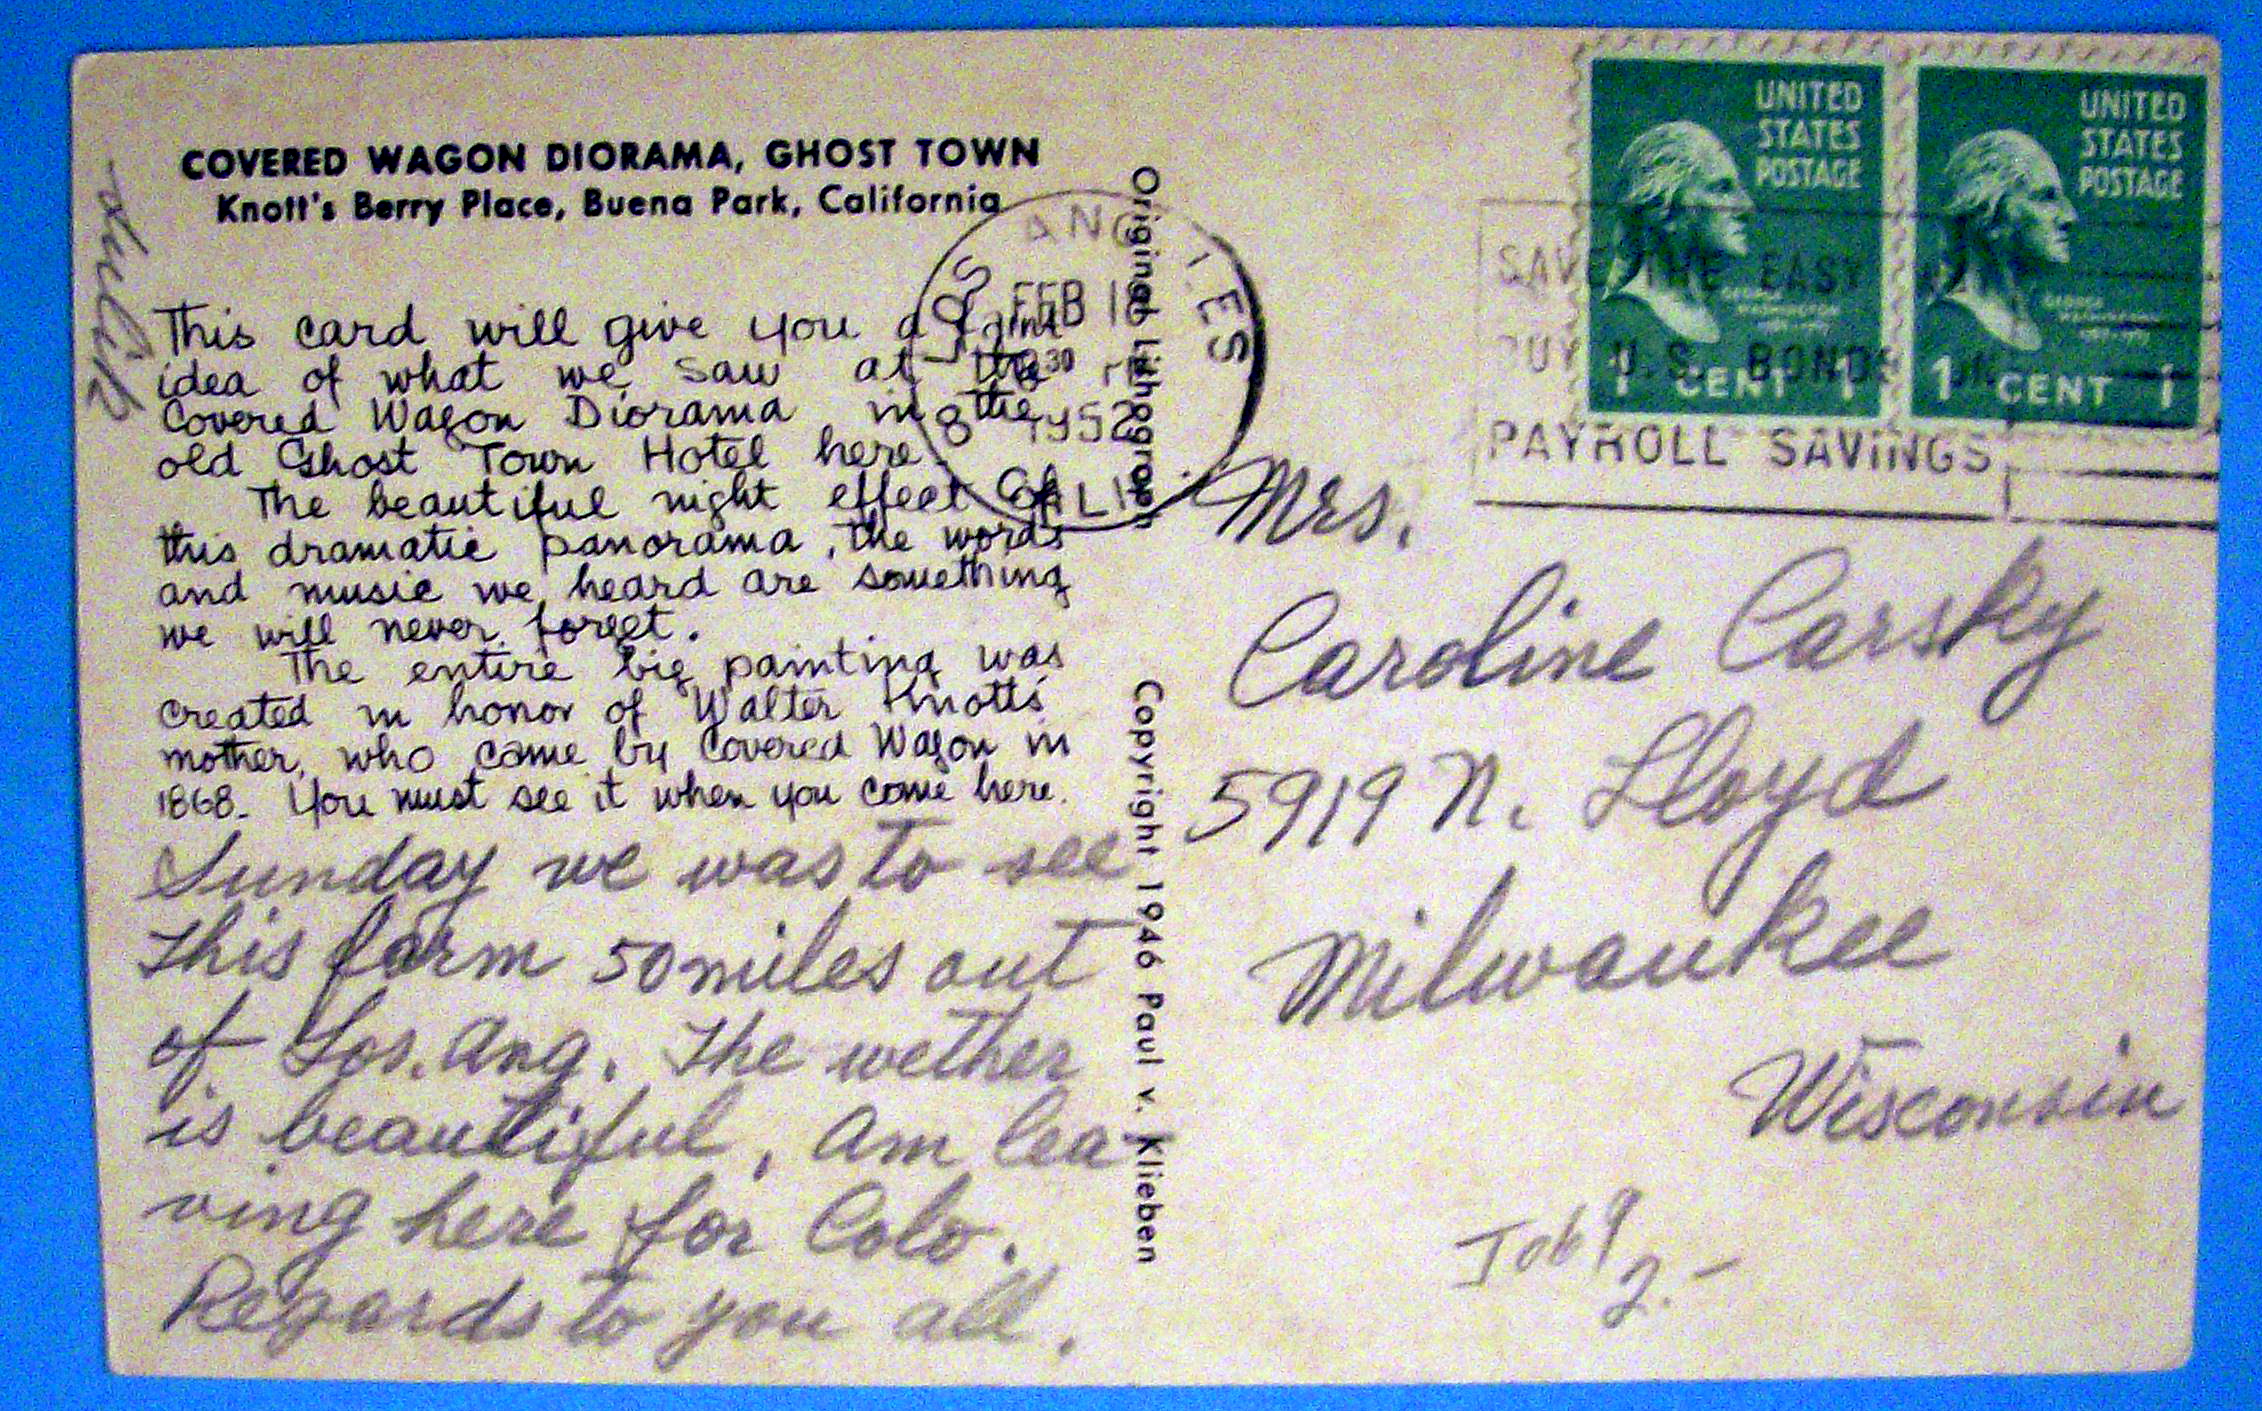 COVERED WAGON DIORAMA, GHOST TOWN
Knott's Berry Place, Buena Park, California
This card will give you a faint
idea of what we saw at the
Covered Wagon Diorama in the
old Ghost Town Hotel here.
The beautiful night effect of
this dramatic panorama, the words
and music we heard are something
we will never forget.
The entire big painting was
created in honor of Walter Knotts'
mother, who came by Covered Wagon in
1868. You must see it when you come here.
Sunday we was to see
this farm 50 miles out
of Los. Ang. The wether
is beautiful, Am lea-
ving here for Colo.
Regards to you all.
Original Lithograph
Copyright 1946 Paul v. Klieben
LOS ANGELES
FEB
30
8 1952
CALIF
UNITED
STATES
POSTAGE
GEORGE
WASHINGTON
1 CENT 1
UNITED
STATES
POSTAGE
GEORGE
WASHINGTON
1 CENT 1
SAVE THE EASY
BUY U.S. BONDS
PAYROLL SAVINGS
Mrs.
Caroline Carsky
5919 N. Lloyd
Milwaukee
Wisconsin
2.-